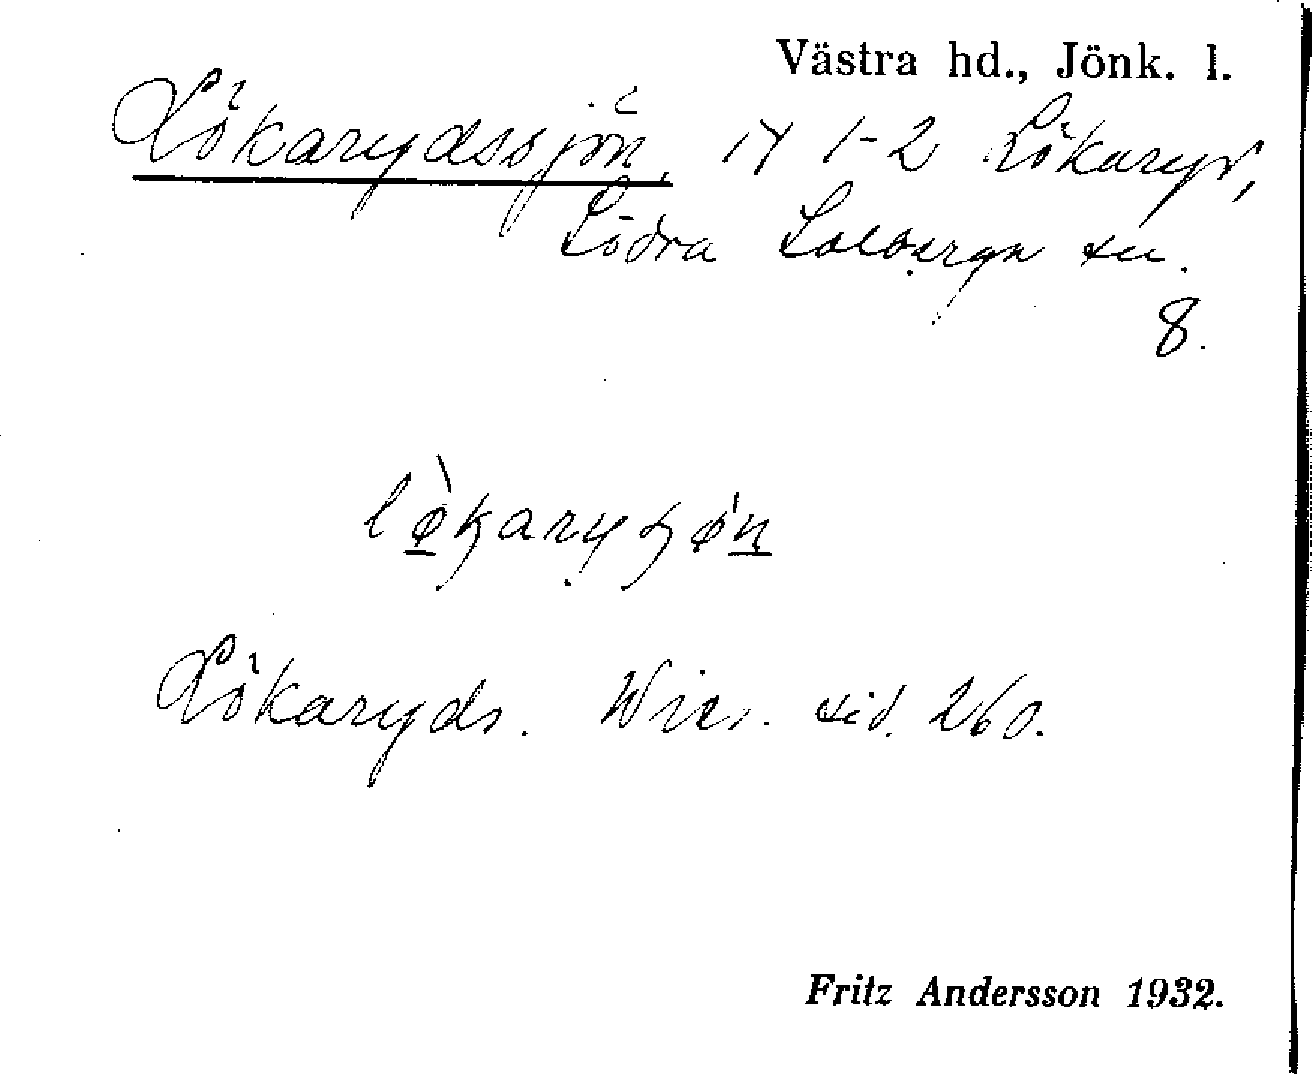 Västra hd., Jönk. l.
Lökarydssjön, 1-2 Lökaryd,
Södra Solberga sn.
8.
lø̀karyʂøń
Lökaryds. Wies. sid. 260.
Fritz Andersson 1932.